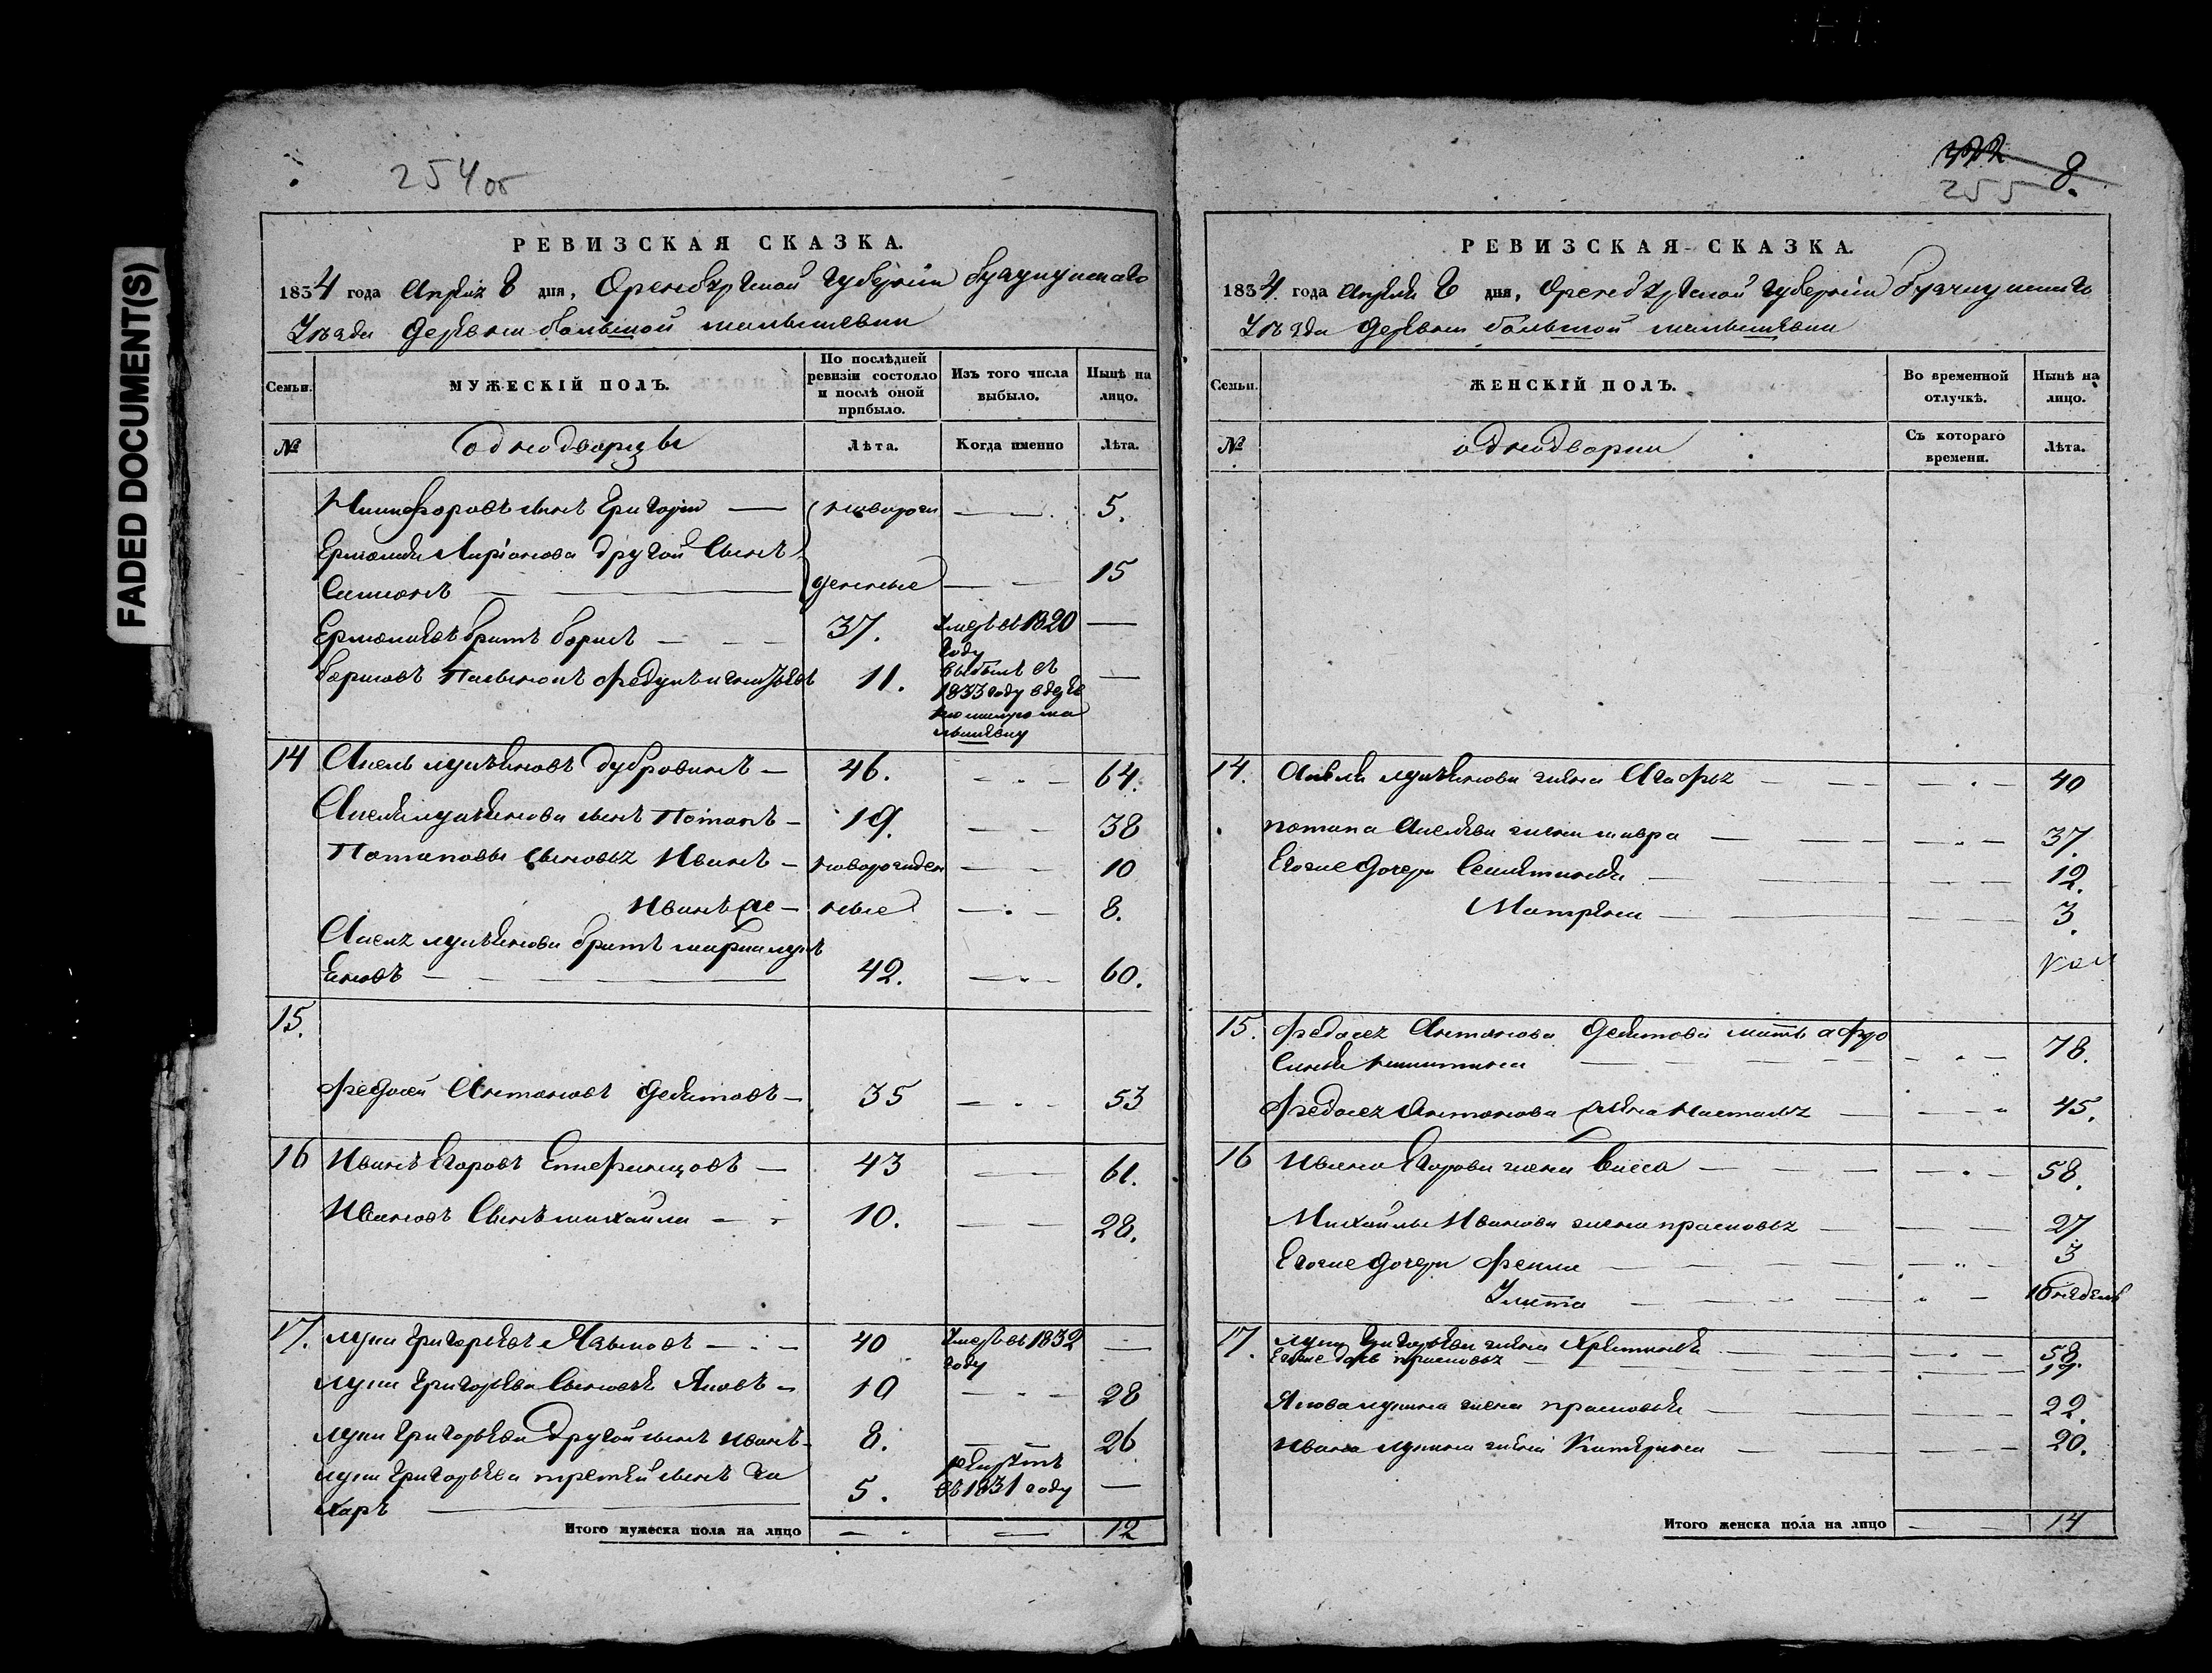 FADED DOCUMENT(S)
254 об
РЕВИЗСКАЯ СКАЗКА.
1834 года Апреля 8 дня, Оренбургской губернии Бугурусланского
Уезда деревни большой малышевки
Семьи. МУЖЕСКІЙ ПОЛЪ. По послѣдней ревизіи состояло и послѣ оной прибыло. Изъ того числа выбыло. Нынѣ на лицо.
№ однодворцы Лѣта. Когда именно Лѣта.
Никифоровъ сынъ Григорій — новорож — 5.
Ермолая Ларіонова другой Сынъ
Симионъ — денные — 15
Ермолаевъ братъ борисъ — 37. умеръ въ 1820 году —
борисовъ Пасынокъ Федулъ игнатьевъ 11. выбылъ въ 1833 году —
14 Лукьяновъ дубровинъ — 46. — 64.
Лукьянова сынъ Потапъ — 19. — 38
Потаповы сыновья Иванъ — новорожден — 10
Иванъ же — ные — 8.
Лукьянова братъ марка лукь
яновъ — 42. — 60.
15.
Федосей Антоновъ Девятовъ — 35 — 53
16 Иванъ Егоровъ — 43 — 61.
Ивановъ Сынъ михайла — 10. — 28.
17. лука Григорьевъ — 40 умеръ въ 1832 году —
луки Григорьева Сыновья Яковъ — 10 — 28
луки Григорьева другой сынъ иванъ — 8. — 26
луки Григорьева третей сынъ За
харъ — 5. рекрутъ въ 1831 году —
Итого мужеска пола на лицо — — 12
8.
255
РЕВИЗСКАЯ СКАЗКА.
1834 года Апреля 8 дня, Оренбургской губерніи Бугурусланского
Уезда деревни большой малышевки
Семьи. ЖЕНСКІЙ ПОЛЪ. Во временной отлучкѣ. Нынѣ на лицо.
№ однодворки Съ котораго времени. Лѣта.
14. лукьянова жена Агафья — 40
потапа жена мавра — 37.
Егоже дочери — 12.
Матрена — 3.
15. Федосея Антонова Девятова мать афро
синья никитина — 78.
Федосея Антонова жена Настасья — 45.
16 Ивана Егорова жена васса — 58.
Михайлы Иванова жена прасковья — 27
Егоже дочери Фекла — 3
Улита — 10 недель
17. луки Григорьева жена — 58.
Егоже дочь прасковья — 19.
Якова лукина жена прасковья — 22.
Ивана лукина жена Катерина — 20.
Итого женска пола на лицо — 14